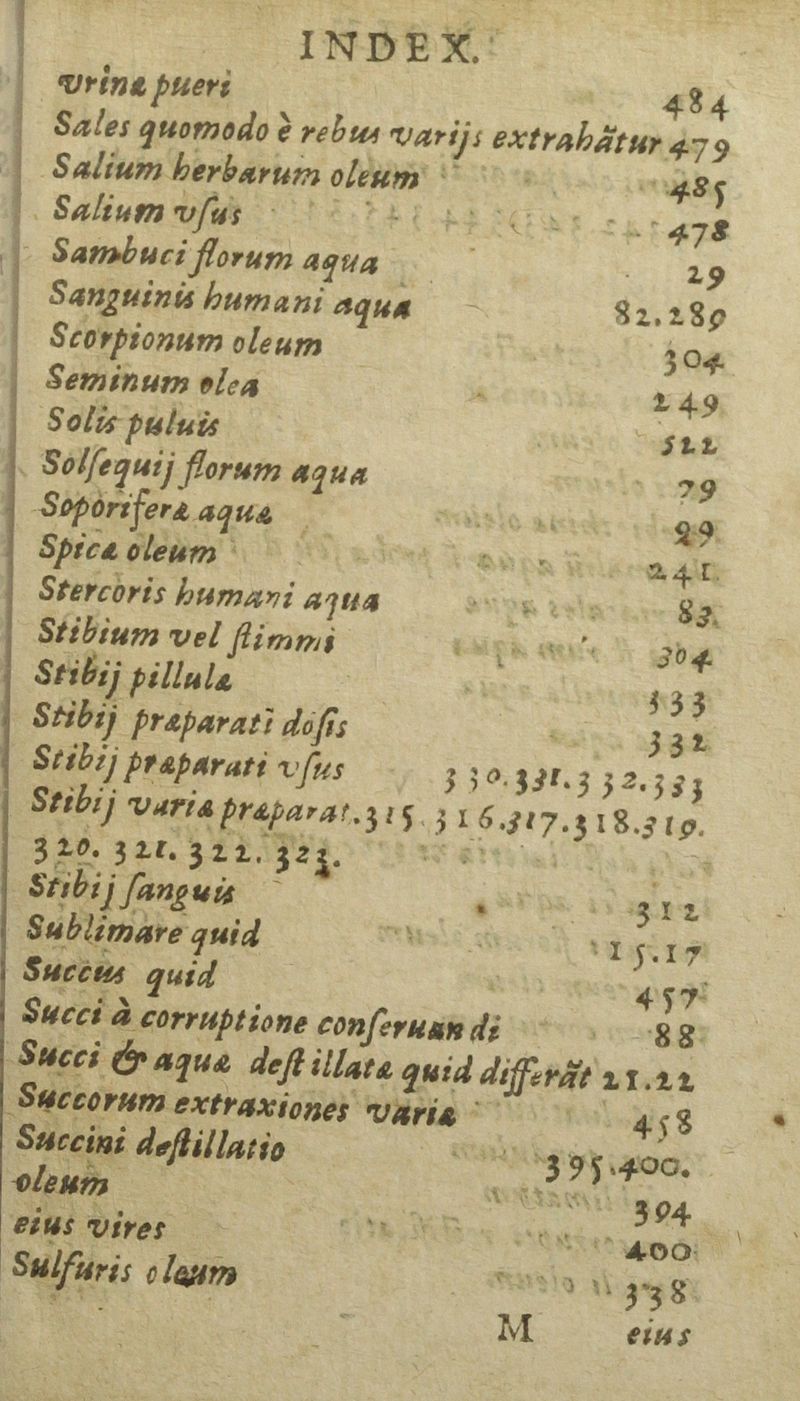 INDEX.
vrinæ pueri 484
Sales quomodo è rebus varijs extrahãtur 479
Salium herbarum oleum 485
Salium vſus 478
Sambuci florum aqua 29
Sanguinis humani aqua 82.289
Scorpionum oleum 304
Seminum olea 249
Solis puluis 522
Solſequij florum aqua 79
Soporiferæ aquæ 99
Spicæ oleum 241
Stercoris humani aqua 83.
Stibium vel ſtimmi 304
Stibij pillulæ 333
Stibij præparati doſis 332
Stibij præparati vſus 330.331.332.333
Stibij variæ præparat. 315 316.317.318.319.
320. 321. 322. 323.
Stibij ſanguis 312
Sublimare quid 15.17
Succus quid 457
Succi à corruptione conſeruandi 88
Succi & aquæ deſtillatæ quid differãt 21.22
Succorum extraxiones variæ 458
Succini deſtillatio 395.400.
oleum 394
eius vires 400
Sulfuris oleum 338
M eius